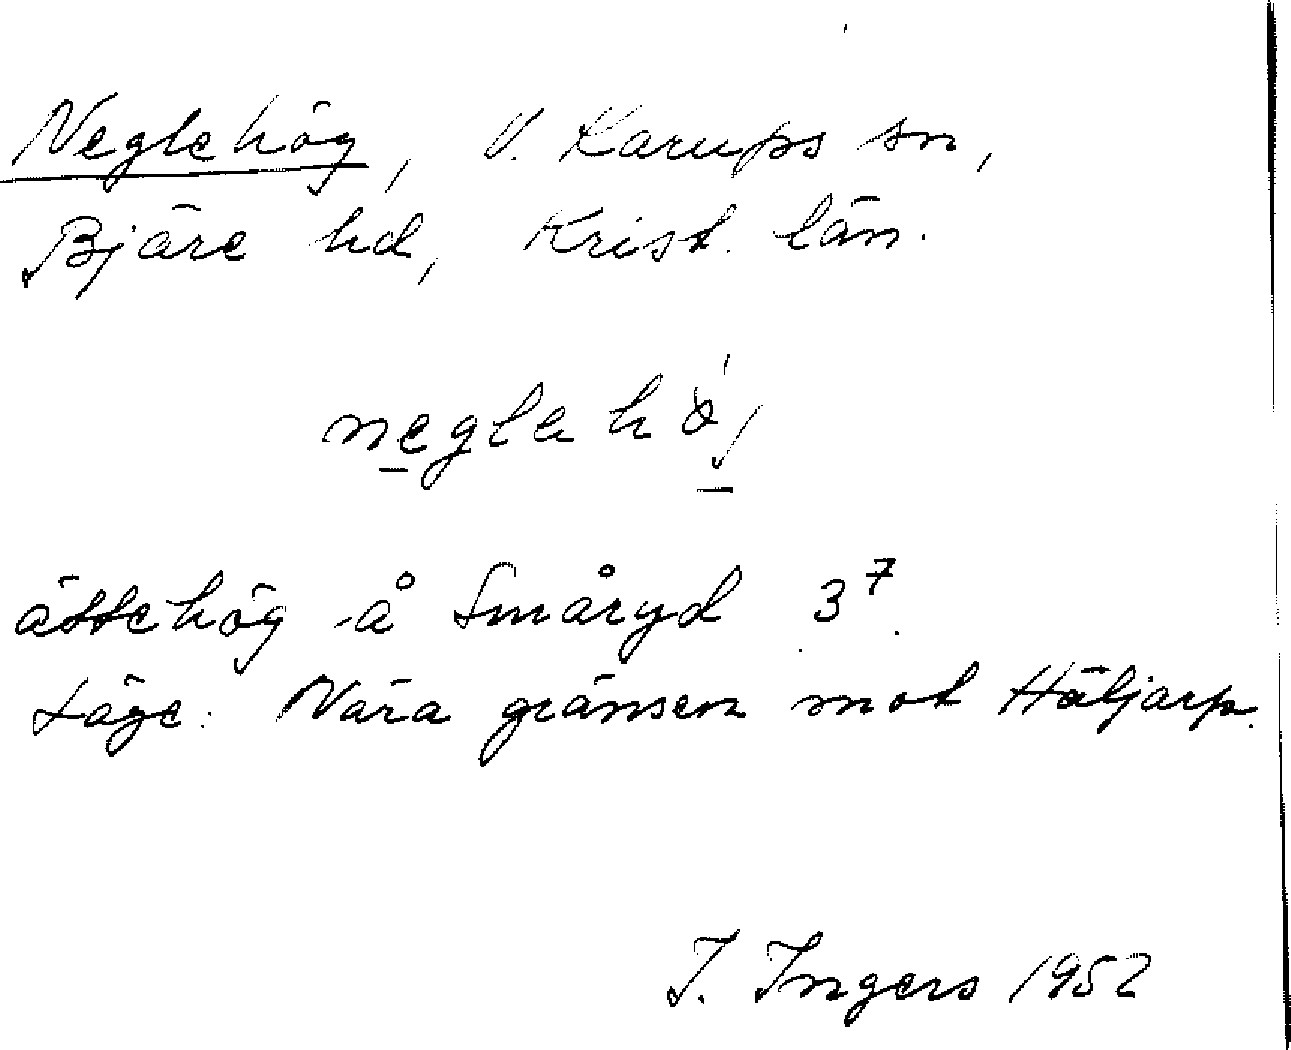 Neglehög, V. Karups sn,
Bjäre hd, Krist. län.
ättehög å Småryd 3⁷.
Läge: Nära gränsen mot Häljarp.
I. Ingers 1952